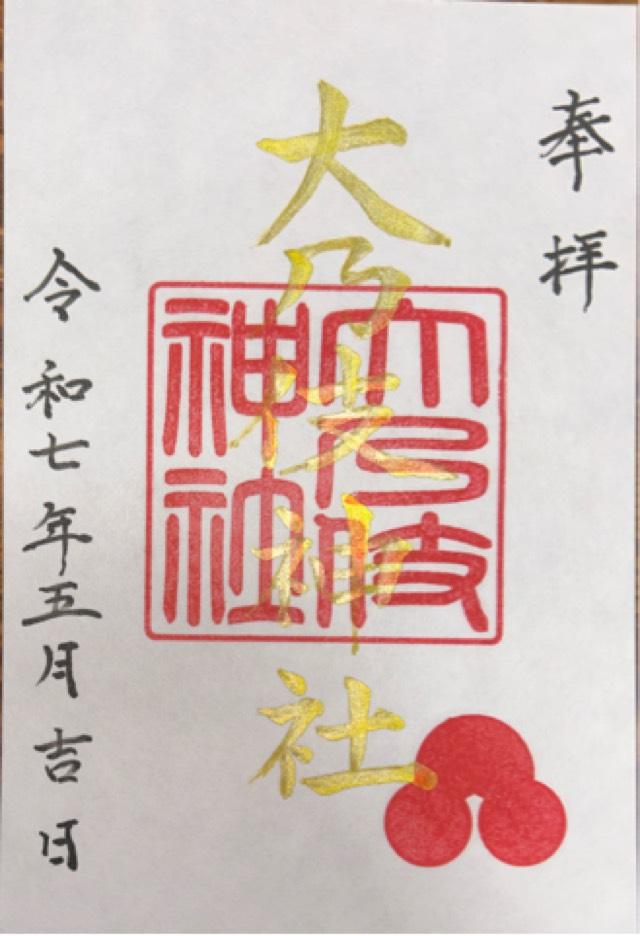 奉拝
大乃伎神社
大乃伎
神社
令和七年五月吉日